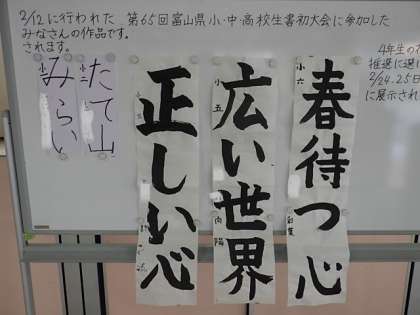 2/12に行われた 第65回富山県小・中・高校生書初大会に参加した
みなさんの作品です。
されます。
4年生の
推選に選
2/24.25日
に展示され
春待つ心
小六
広い世界
小五
正しい心
たて山
みらい